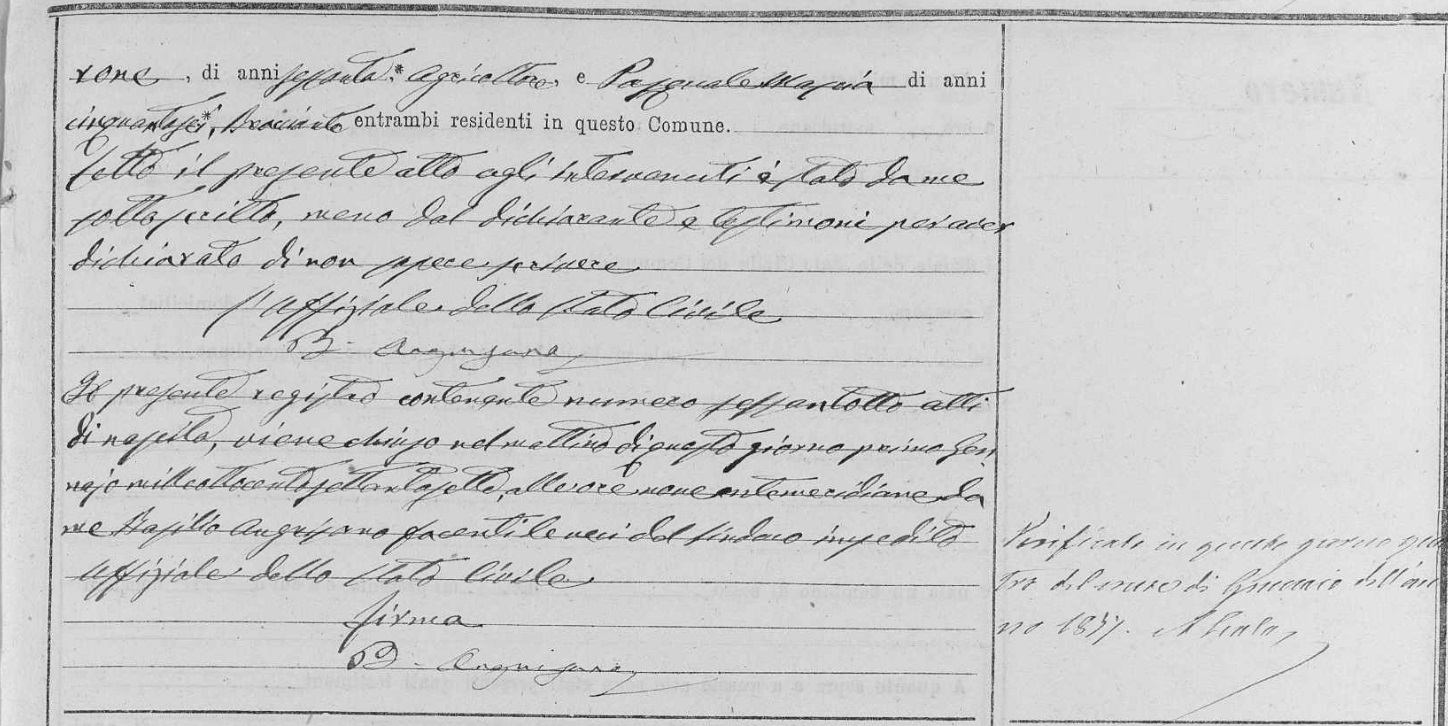 rone, di anni sessanta, Agricoltore, e Pasquale Masina di anni
cinquantasei, Bracciante entrambi residenti in questo Comune.
Letto il presente atto agli intervenuti è stato da me
sottoscritto, meno dal dichiarante e testimoni per aver
dichiarato di non sapere scrivere
L'Uffiziale dello Stato Civile
B. Anguisana
Il presente registro contenente numero sessantotto atti
di nascita, viene chiuso nel mattino di questo giorno primo Gen
najo milleottocentosettantasette, alle ore nove antemeridiane da
me Basilio Anguisano facenti le veci del sindaco impedito
Uffiziale dello Stato Civile
firma
B. Anguisana
Verificato in questo giorno quat
tro del mese di Gennaio dell'an
no 1877.